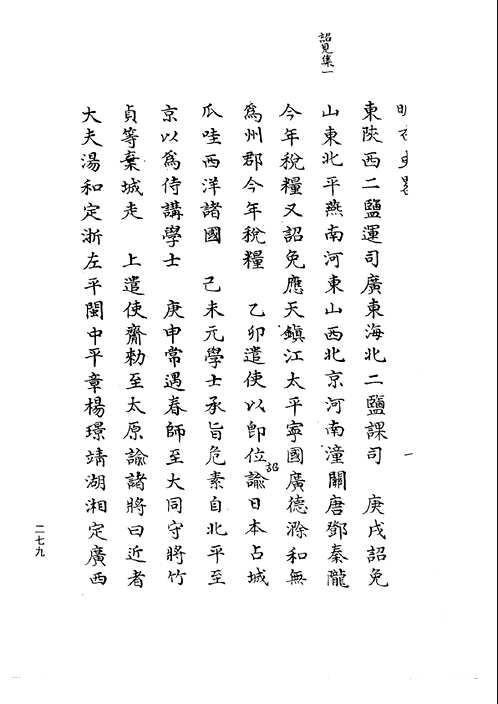 詔見集一
東陝西二鹽運司廣東海北二鹽課司　庚戌詔免
山東北平燕南河東山西北京河南潼關唐鄧秦隴
今年稅糧又詔免應天鎮江太平寧國廣德滁和無
為州郡今年稅糧　乙卯遣使以即位諭日本占城
瓜哇西洋諸國　己未元學士承旨危素自北平至
京以為侍講學士　庚申常遇春師至大同守將竹
貞等棄城走　上遣使齎勅至太原諭諸將曰近者
大夫湯和定浙左平閩中平章楊璟靖湖湘定廣西
一
二七九